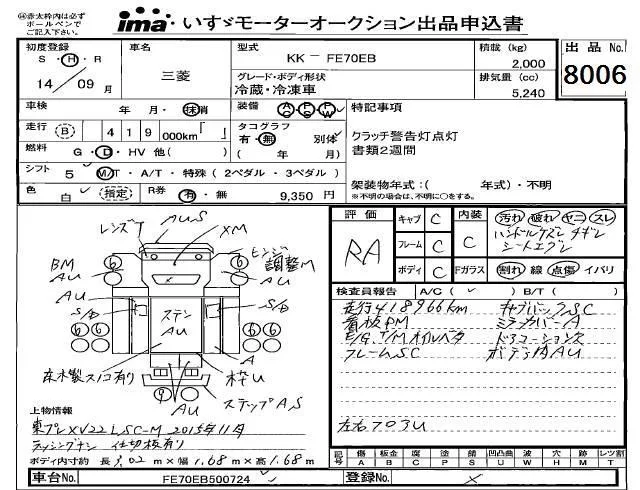 ㊟赤太枠内は必ずボールペンでご記入下さい。
ima いすゞモーターオークション出品申込書
初度登録 S・H・R 14/09月
車名 三菱
型式 KK－FE70EB
積載 (kg) 2,000
出品No. 8006
グレード・ボディ形状 冷蔵・冷凍車
排気量 (cc) 5,240
車検 年 月・抹消
装備 AC PS PW
特記事項
走行 (B) 419,000km「 」
タコグラフ 有・無 別体 ( 年 月)
クラッチ警告灯点灯
書類2週間
燃料 G・D・HV 他( )
シフト 5 M/T・A/T・特殊 ( 2ペダル・3ペダル )
架装物年式：( 年式)・不明
※不明の場合は、不明に○をする。
色 白 (指定)
R券 有・無 9,350 円
評価 RA
キャブ C
フレーム C
ボディ C
内装 C
Fガラス
汚れ 破れ ヤニ スレ
ハンドルケズレ チギレ
シートエグレ
割れ 線 点傷 イバリ
レンズワ AUS
XM
ヒンジ調整M
BM
AU
AU
S/B
ステン
AU
S/B
AU
A
床木製スノコ有り
枠U
AU
ステップAS
6 6 6 6 6 6 9
検査員報告 A/C( ✓ ) B/T( )
走行418966km キャブバックSC
看板PM ミラーカバーA
E/G.T/Mオイルベタ ドアコーションヌ
フレームSC ボディ内AU
左右703U
上物情報
東プレXV22LSC-M 2015年11月
ラッシングナシ 仕切板有り
ボディ内寸約 長3.02m×幅1.68m×高1.68m
記号 傷 A 板金 B 腐 C 塗 P 錆 S 凹凸曲 U 波 W 穴 H 跡 M レツ割 T
車台No. FE70EB500724
登録No.